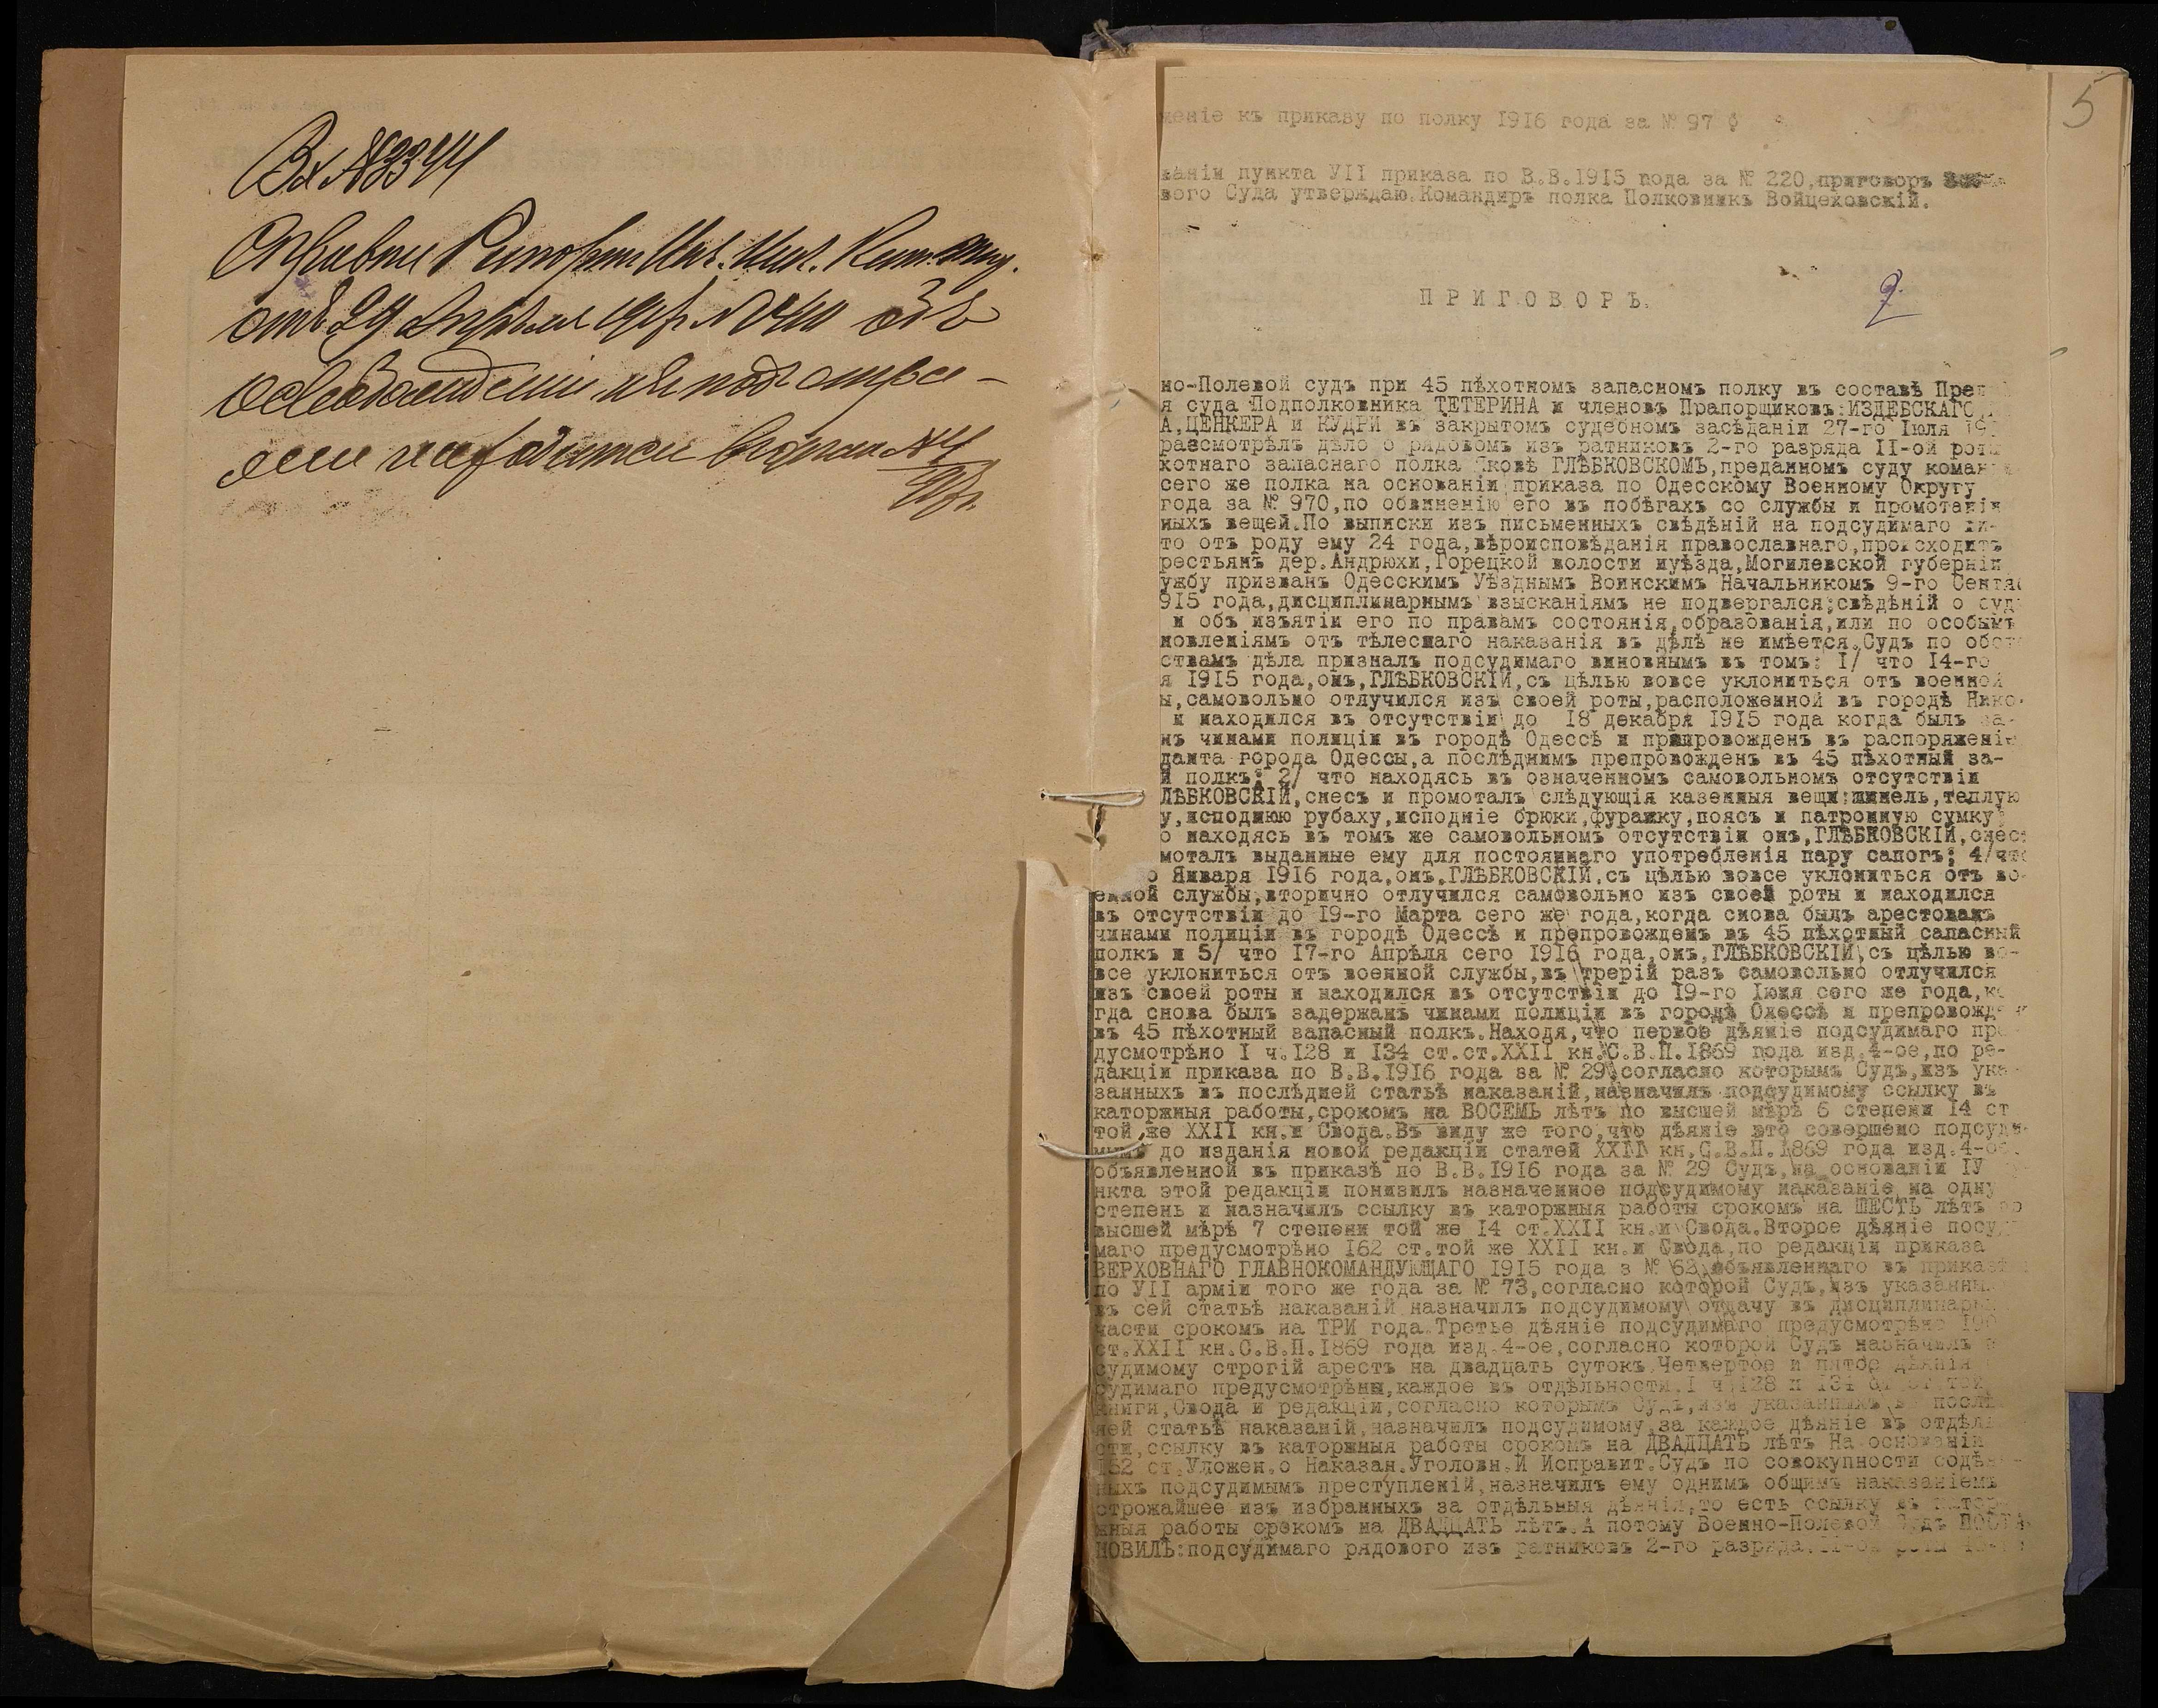 Вх №3344
отъ 29 Апрѣля №
5
женіе къ приказу по полку 1916 года за № 97
ваніи пункта УІІ приказа по В.В.1915 пода за № 220,приговоръ
вого Суда утверждаю.Командиръ полка Полковникъ Войцеховскій.
2
ПРИГОВОРЪ.
но-Полевой судъ при 45 пѣхотномъ запасномъ полку въ составѣ Пред
я суда Подполковника ТЕТЕРИНА и членовъ Прапорщиковъ:ИЗДЕБСКАГО,
А,ЦЕНКЕРА и КУДРИ въ закрытомъ судебномъ засѣданіи 27-го Іюля 191
разсмотрѣлъ дѣло о рядовомъ изъ ратниковъ 2-го разряда II-ой роты
хотнаго запаснаго полка Яковѣ ГЛѢБКОВСКОМЪ,преданномъ суду коман
сего же полка на основаніи приказа по Одесскому Военному Округу
года за № 970,по обвиненію его въ побѣгахъ со службы и промотаніи
ныхъ вещей.По выписки изъ письменныхъ свѣдѣній на подсудимаго ви-
то отъ роду ему 24 года,вѣроисповѣданія православнаго,происходитъ
рестьянъ дер.Андрюхи,Горецкой волости иуѣзда,Могилевской губерніи
ужбу призванъ Одесскимъ Уѣзднымъ Воинскимъ Начальникомъ 9-го Сентя
915 года,дисциплинарнымъ взысканіямъ не подвергался;свѣдѣній о суд
и объ изъятіи его по правамъ состоянія,образованія,или по особымъ
новленіямъ отъ тѣлеснаго наказанія въ дѣлѣ не имѣется.Судъ по обст
ствамъ дѣла призналъ подсудимаго виновнымъ въ томъ: I/ что I4-го
я 1915 года,онъ,ГЛѢБКОВСКІЙ,съ цѣлью вовсе уклониться отъ военной
ы,самовольно отлучился изъ своей роты,расположенной въ городѣ Нико-
и находился въ отсутствіи до 18 декабря 1915 года когда былъ за-
нъ чинами полиціи въ городѣ Одессѣ и препровожденъ въ распоряженіе
данта города Одессы,а послѣднимъ препровожденъ въ 45 пѣхотный за-
й полкъ; 2/ что находясь въ означенномъ самовольномъ отсутствіи
ЛѢБКОВСКІЙ,снесъ и промоталъ слѣдующія казенныя вещи:шинель,теплую
у,исподнюю рубаху,исподніе брюки,фуражку,поясъ и патронную сумку
о находясь въ томъ же самовольномъ отсутствіи онъ,ГЛѢБКОВСКІЙ,снес
моталъ выданные ему для постояннаго употребленія пару сапогъ; 4/что
о Января 1916 года,онъ,ГЛѢБКОВСКІЙ,съ цѣлью вовсе уклониться отъ во-
енной службы,вторично отлучился самовольно изъ своей роты и находился
въ отсутствіи до 19-го Марта сего же года,когда снова былъ арестованъ
чинами полиціи въ городѣ Одессѣ и препровожденъ въ 45 пѣхотный сапасный
полкъ и 5/ что 17-го Апрѣля сего 1916 года,онъ,ГЛѢБКОВСКІЙ,съ цѣлью во-
все уклониться отъ военной службы,въ трерій разъ самовольно отлучился
изъ своей роты и находился въ отсутствіи до 19-го Іюня сего же года,ко
гда снова былъ задержанъ чинами полиціи въ городѣ Одессѣ и препровожден
въ 45 пѣхотный запасный полкъ.Находя,что первое дѣяніе подсудимаго пре
дусмотрѣно I ч.128 и 134 ст.ст.XXII кн.С.В.П.1869 пода изд.4-ое,по ре-
дакціи приказа по В.В.1916 года за № 29,согласно которымъ Судъ,изъ ука-
занныхъ въ послѣдней статьѣ наказаній,назначилъ подсудимому ссылку въ
каторжныя работы,срокомъ на ВОСЕМЬ лѣтъ по высшей мѣрѣ 6 степени 14 ст
той же XXII кн.и Свода.Въ виду же того,что дѣяніе это совершено подсуди-
мымъ до изданія новой редакціи статей XXII кн.С.В.П.1869 года изд.4-ое
объявленной въ приказѣ по В.В.1916 года за № 29 Судъ,на основаніи ІУ
нкта этой редакціи понизилъ назначенное подсудимому наказаніе на одну
степень и назначилъ ссылку въ каторжныя работы срокомъ на ШЕСТЬ лѣтъ по
высшей мѣрѣ 7 степени той же 14 ст.XXII кн.и Свода.Второе дѣяніе посуд
маго предусмотрѣно 162 ст.той же XXII кн.и Свода,по редакціи приказа
ВЕРХОВНАГО ГЛАВНОКОМАНДУЮЩАГО 1915 года з № 62,объявленнаго въ приказѣ
по УІІ арміи того же года за № 73,согласно которой Судъ,изъ указанны
въ сей статьѣ наказаній назначилъ подсудимому отдачу въ дисциплинарн
части срокомъ на ТРИ года.Третье дѣяніе подсудимаго предусмотрѣно
ст.XXII кн.С.В.П.1869 года изд.4-ое,согласно которой Судъ назначилъ
судимому строгій арестъ на двадцать сутокъ.Четвертое и пятое дѣянія
судимаго предусмотрѣны,каждое въ отдѣльности.I ч.128 и 134 ст.ст.той
книги,Свода и редакціи,согласно которымъ Судъ,изъ указанныхъ въ послѣ
ней статьѣ наказаній,назначилъ подсудимому,за каждое дѣяніе въ отдѣль
сти,ссылку въ каторжныя работы срокомъ на ДВАДЦАТЬ лѣтъ На основаніи
152 ст.Уложен.о Наказан.Уголовн.И Исправит.Судъ по совокупности содѣян-
ныхъ подсудимымъ преступленій,назначилъ ему однимъ общимъ наказаніемъ
строжайшее изъ избранныхъ за отдѣльныя дѣянія,то есть ссылку въ катор
жныя работы срокомъ на ДВАДЦАТЬ лѣтъ.А потому Военно-Полевой Судъ ПОСТА
НОВИЛЪ:подсудимаго рядового изъ ратниковъ 2-го разряда II-ой роты 45-